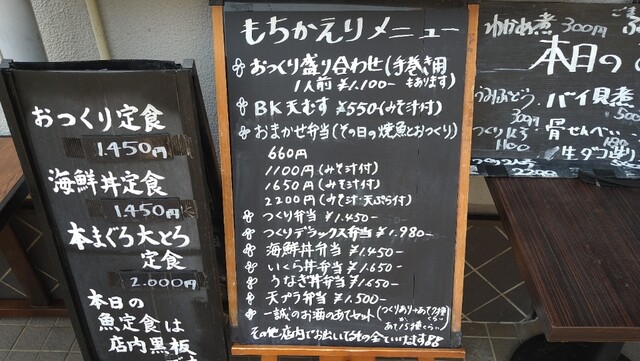 おつくり定食
1.450円
海鮮丼定食
1.450円
本まぐろ大とろ
定食
2.000円
本日の
魚定食は
店内黒板
もちかえりメニュー
おつくり盛り合わせ(手巻き用
1人前 ¥1.100- もあります)
BK天むす ¥550-(みそ汁付)
おまかせ弁当(その日の焼魚とおつくり)
660円
1100円(みそ汁付)
1650円(みそ汁付)
2200円(みそ汁・天ぷら付)
つくり弁当 ¥1.450-
つくりデラックス弁当 ¥1.980-
海鮮丼弁当 ¥1.450-
いくら丼弁当 ¥1.650-
うなぎ丼弁当 ¥1.650-
天プラ弁当 ¥1.500-
一誠のお酒のあてセット
その他店内でお出いてる
わかめ煮 300円
本日の
うみぶどう
300円
バイ貝煮
骨せんべい
1100
生ダコ
2200